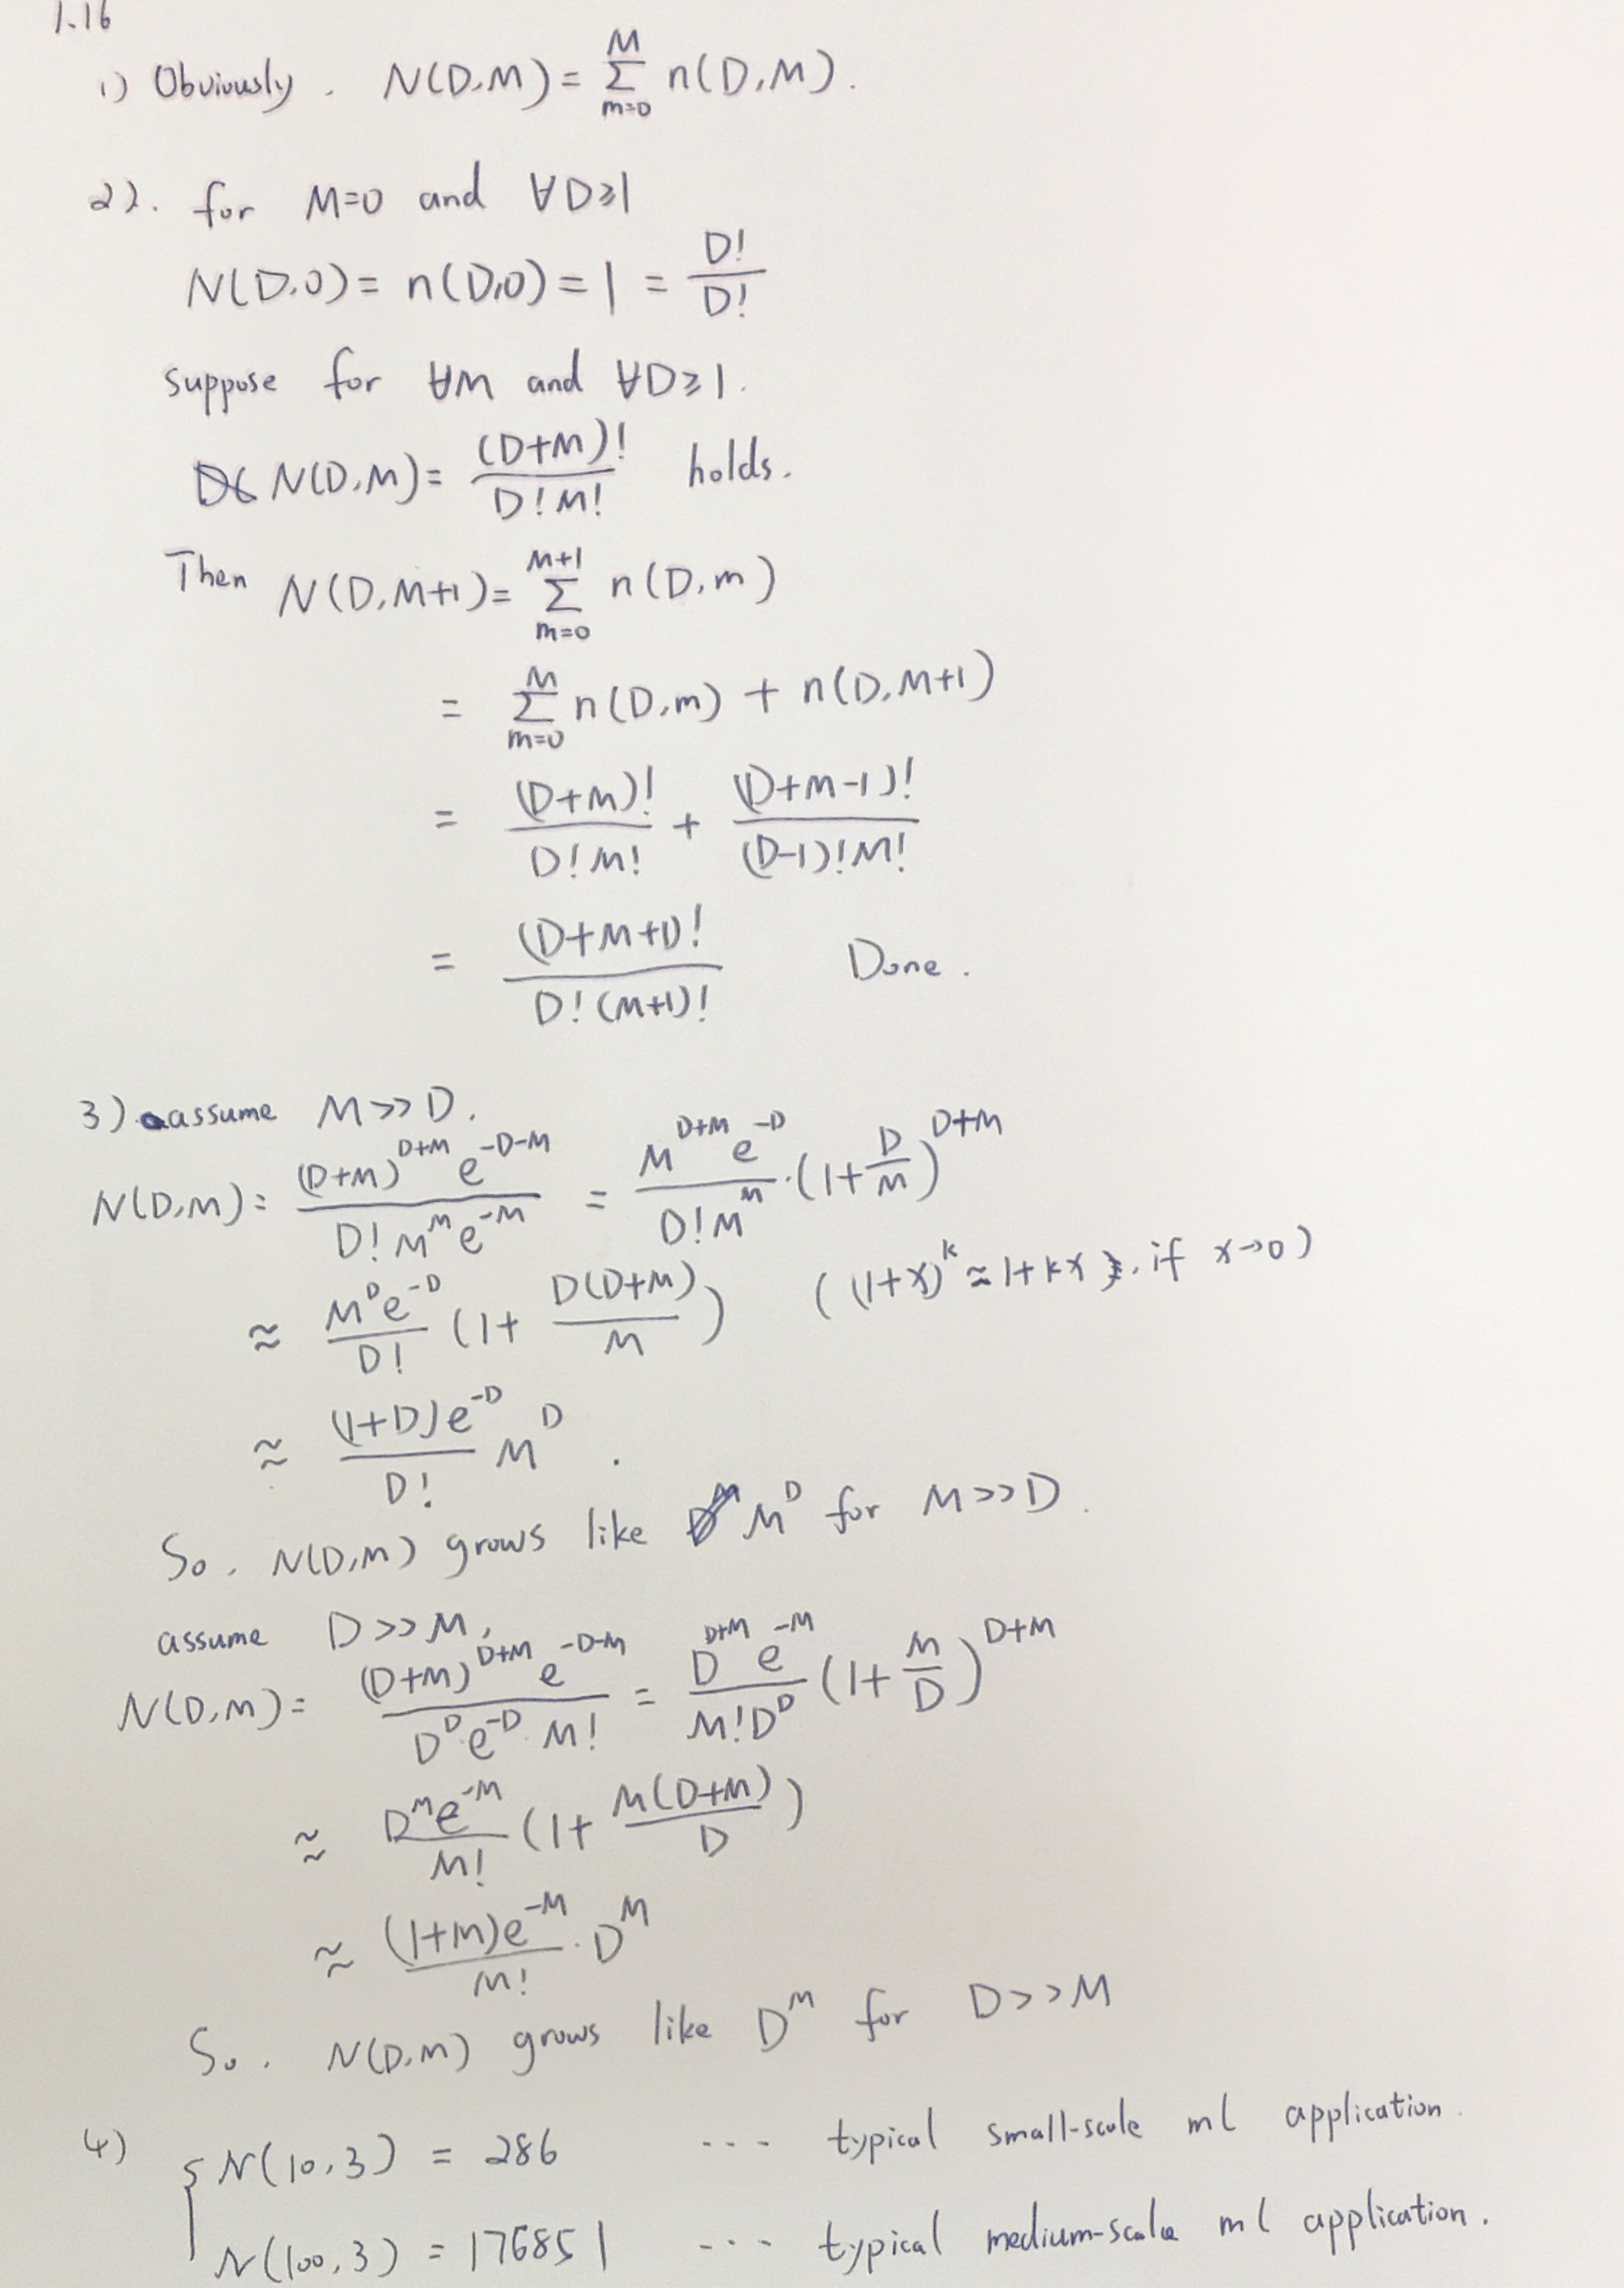 1.16
1) Obviously. N(D,M) = \sum_{m=0}^{M} n(D,M).
2). for M=0 and ∀D≥1
N(D,0) = n(D,0) = 1 = \frac{D!}{D!}
suppose for ∀M and ∀D≥1.
N(D,M) = \frac{(D+M)!}{D!M!} holds.
Then N(D,M+1) = \sum_{m=0}^{M+1} n(D,m)
= \sum_{m=0}^{M} n(D,m) + n(D,M+1)
= \frac{(D+M)!}{D!M!} + \frac{(D+M-1)!}{(D-1)!M!}
= \frac{(D+M+1)!}{D!(M+1)!} Done.
3) assume M>>D.
N(D,M) = \frac{(D+M)^{D+M} e^{-D-M}}{D! M^M e^{-M}} = \frac{M^{D+M} e^{-D}}{D! M^M} · (1+\frac{D}{M})^{D+M}
≈ \frac{M^D e^{-D}}{D!} (1+\frac{D(D+M)}{M}) ((1+x)^k ≈ 1+kx. if x→0)
≈ \frac{(1+D)e^{-D}}{D!} M^D.
So. N(D,M) grows like M^D for M>>D.
assume D>>M,
N(D,M) = \frac{(D+M)^{D+M} e^{-D-M}}{D^D e^{-D} M!} = \frac{D^{D+M} e^{-M}}{M! D^D} (1+\frac{M}{D})^{D+M}
≈ \frac{D^M e^{-M}}{M!} (1+\frac{M(D+M)}{D})
≈ \frac{(1+M)e^{-M}}{M!} · D^M
So. N(D,M) grows like D^M for D>>M
4) { N(10,3) = 286 ... typical small-scale ml application.
N(100,3) = 176851 ... typical medium-scale ml application.